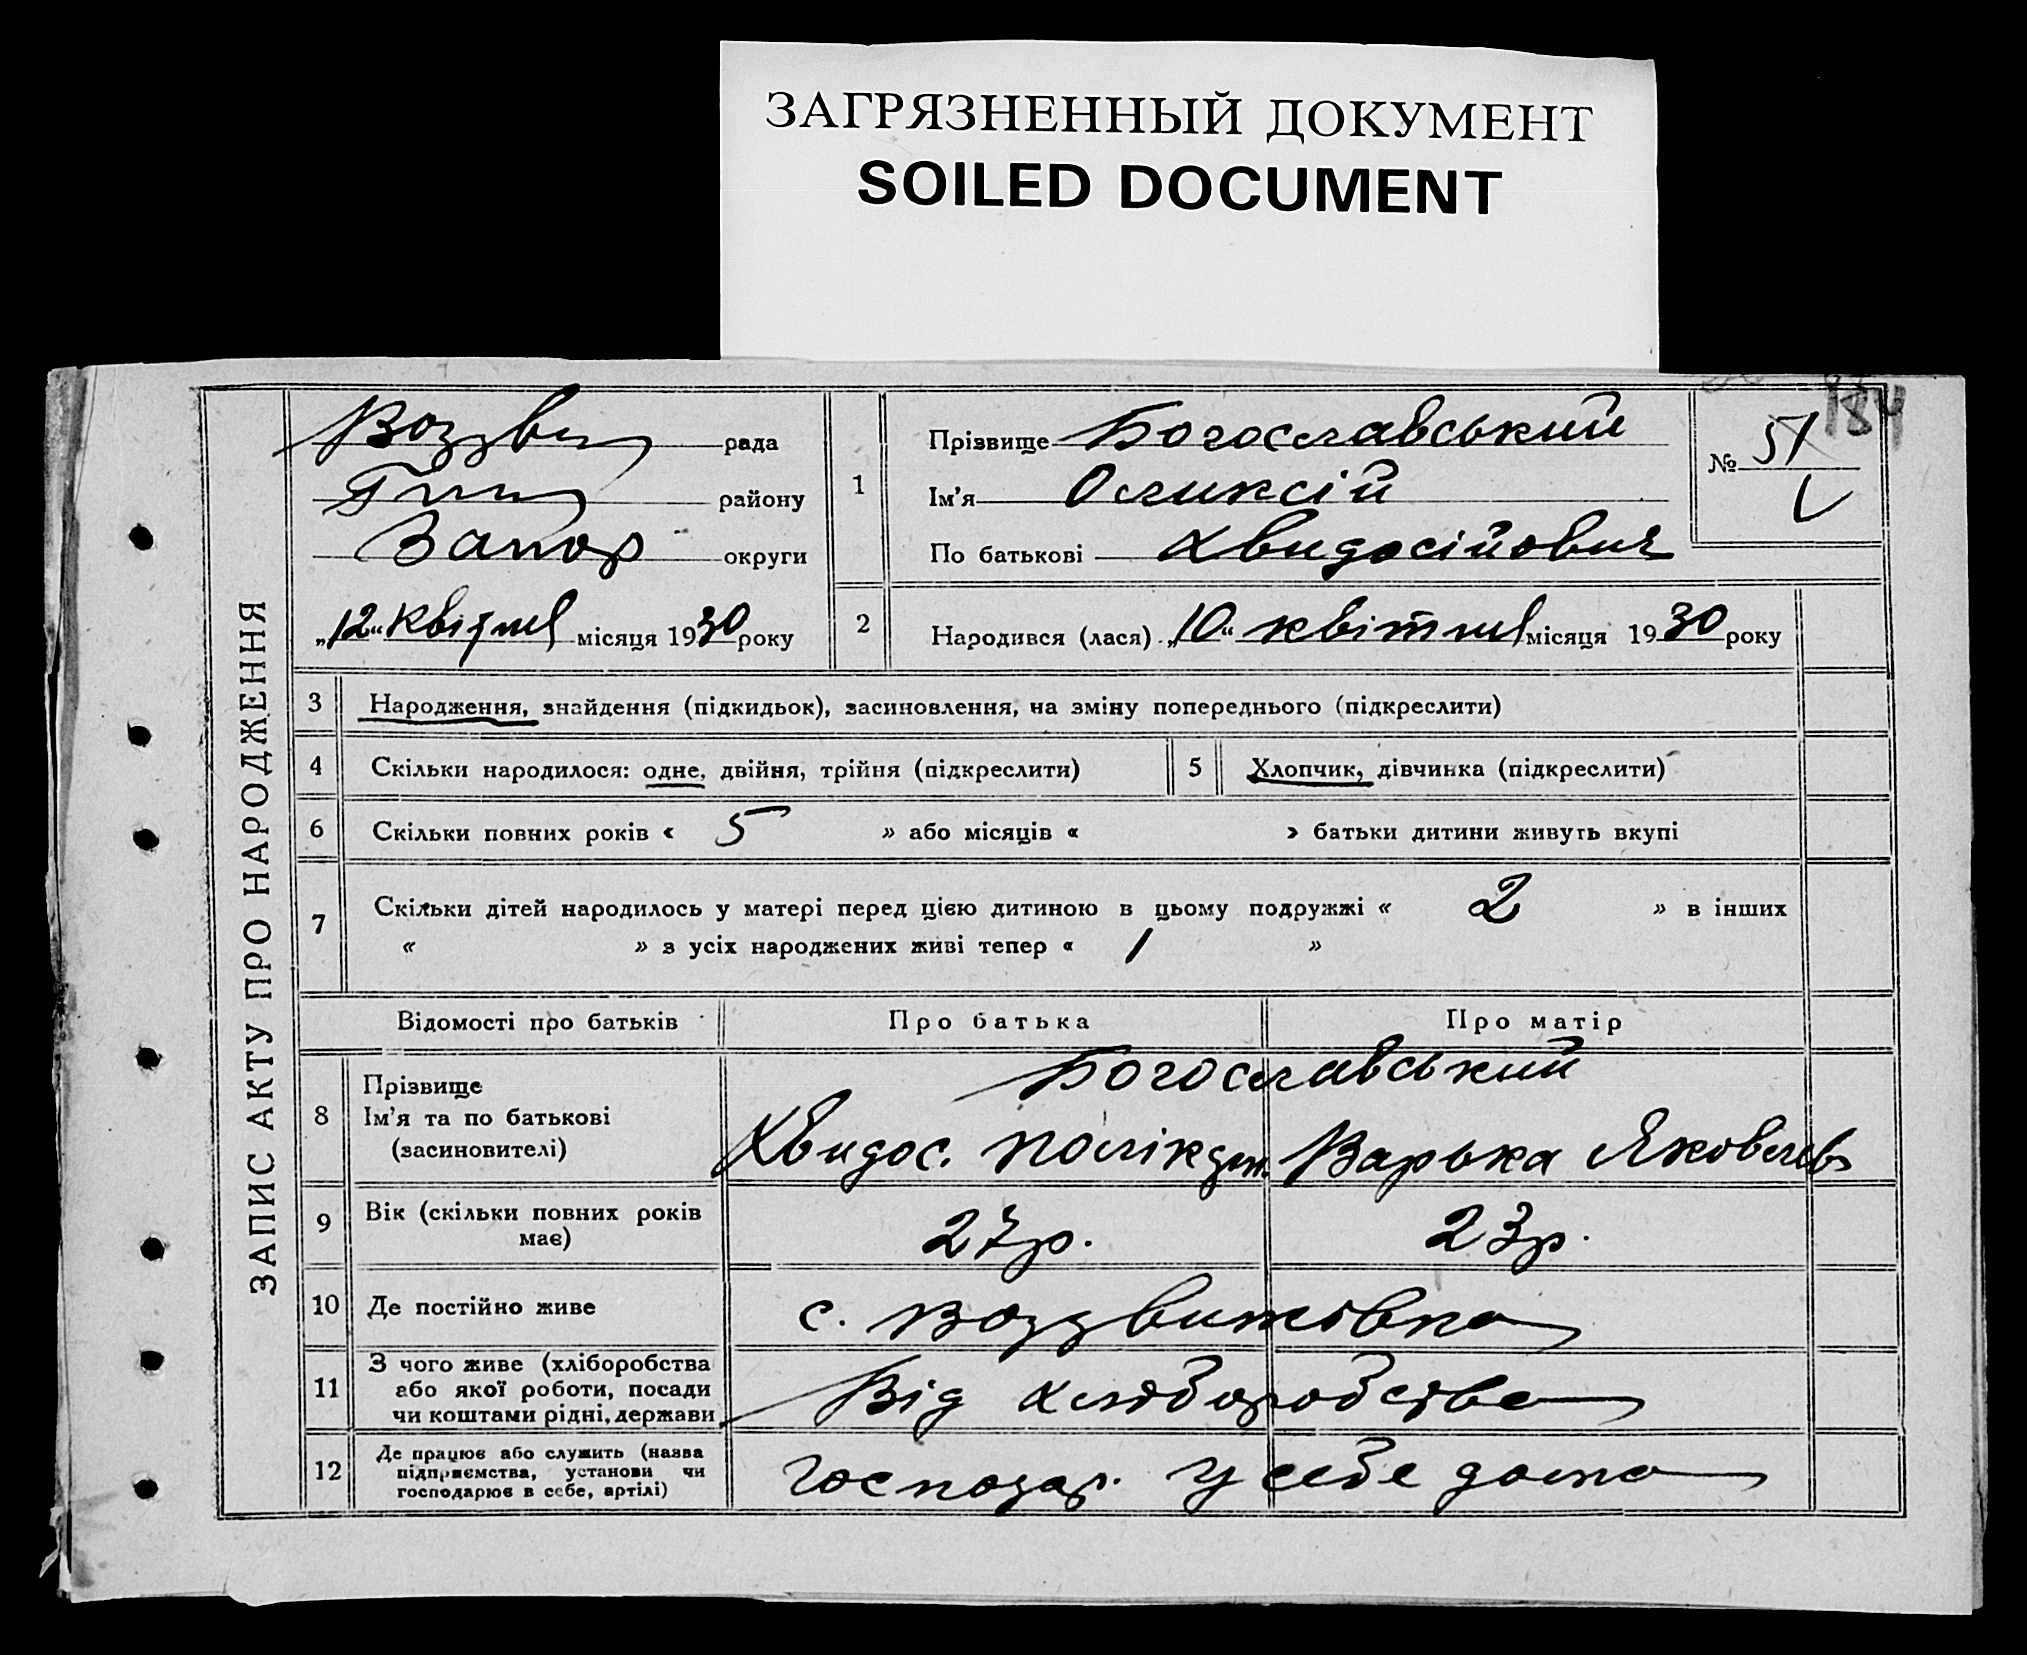 ЗАГРЯЗНЕННЫЙ ДОКУМЕНТ
SOILED DOCUMENT
184
ЗАПИС АКТУ ПРО НАРОДЖЕННЯ
Воздви рада
району
Запор округи
„12“ Квітня місяця 1930 року
1
Прізвище Богославський
Ім'я Оликсій
По батькові Хвидосійович
№ 51
2
Народився (лася) „10“ квітня місяця 1930 року
3 Народження, знайдення (підкидьок), засиновлення, на зміну попереднього (підкреслити)
4 Скільки народилося: одне, двійня, трійня (підкреслити)
5 Хлопчик, дівчинка (підкреслити)
6 Скільки повних років « 5 » або місяців « » батьки дитини живуть вкупі
7 Скільки дітей народилось у матері перед цією дитиною в цьому подружжі « 2 » в інших
« » з усіх народжених живі тепер « 1 »
Відомості про батьків Про батька Про матір
8 Прізвище Богославський
Ім'я та по батькові
(засиновителі) Хвидос. Полікт. Варька Яковлев
9 Вік (скільки повних років
має) 27 р. 23 р.
10 Де постійно живе с. Воздвижівка
11 З чого живе (хліборобства
або якої роботи, посади
чи коштами рідні, держави Від хліборобства
12 Де працює або служить (назва
підприємства, установи чи
господарює в себе, артілі) Господар. У себе дома